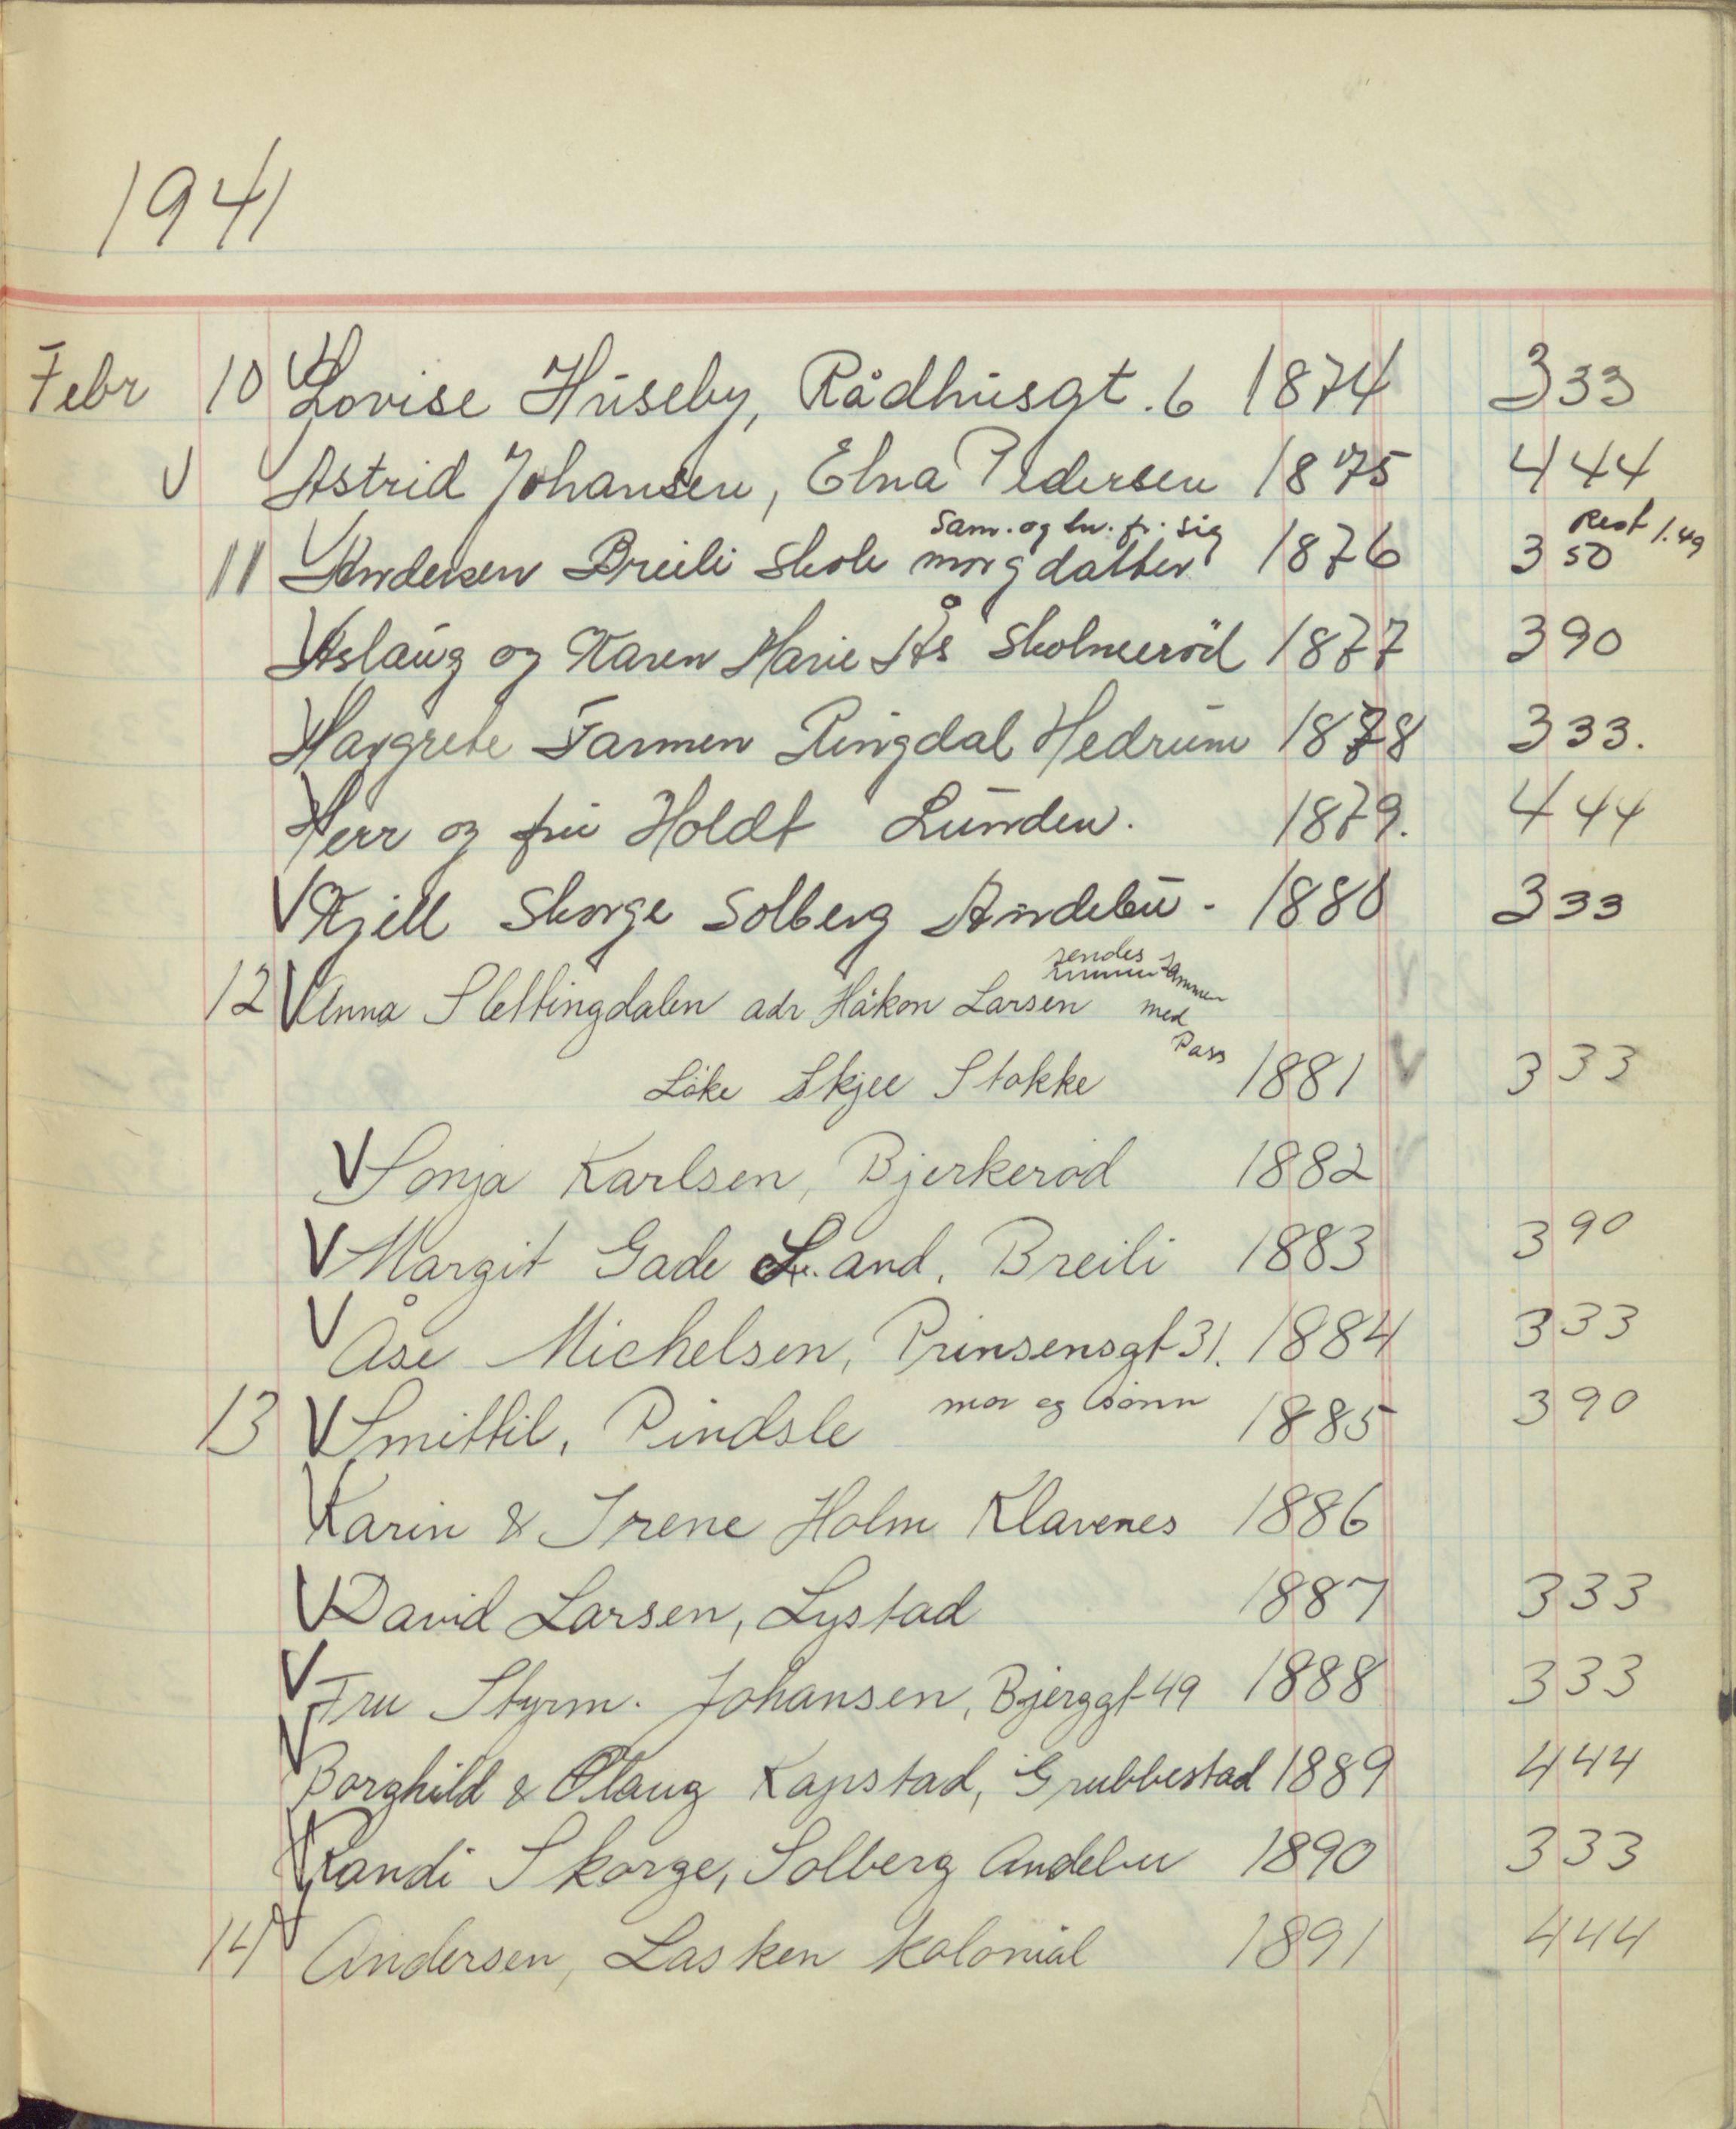 1941
Febr 10 Lovise Huseby, Rådhusgt. 6 1874 333
Astrid Johansen, Elna Pedersen 1875 444
Sam. og hv. fr. sig Rest 1.49
11 Andersen Breili Skole mor g datter 1876 3 50
Aslaug og Karen Marie Ås Skolmerød 1877 390
Margrete Farmen Ringdal Hedrum 1878 333.
Herr og fru Holdt Lunden. 1879. 444
Kjell Skorge Solberg Andebu - 1880 333
sendes sammen
12 Anna Slettingdalen adr Håkon Larsen med
Pass
Løke Skjee Stokke 1881 333
Sonja Karlsen, Bjerkerød 1882
Margit Gade L. and. Breili 1883 390
Åse Michelsen, Prinsensgt 31. 1884 333
13 Smittil, Pindsle mor og sønn 1885 390
Karin & Irene Holm Klavenes 1886
David Larsen, Lystad 1887 333
Fru Styrm. Johansen, Bjerggt 49 1888 333
Borghild & Olaug Kapstad, Grubbestad 1889 444
Randi Skorge, Solberg Andebu 1890 333
14 Andersen, Lasken kolonial 1891 444